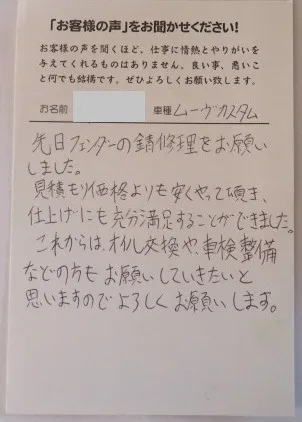 「お客様の声」をお聞かせください!
お客様の声を聞くほど、仕事に情熱とやりがいを
与えてくれるものはありません。良い事、悪いこ
と何でも結構です。ぜひよろしくお願い致します。
お名前 車種 ムーヴカスタム
先日フェンダーの錆修理をお願い
しました。
見積もり価格よりも安くやって頂き、
仕上げにも充分満足することができました。
これからは、オイル交換や、車検整備
などの方もお願いしていきたいと
思いますのでよろしくお願いします。